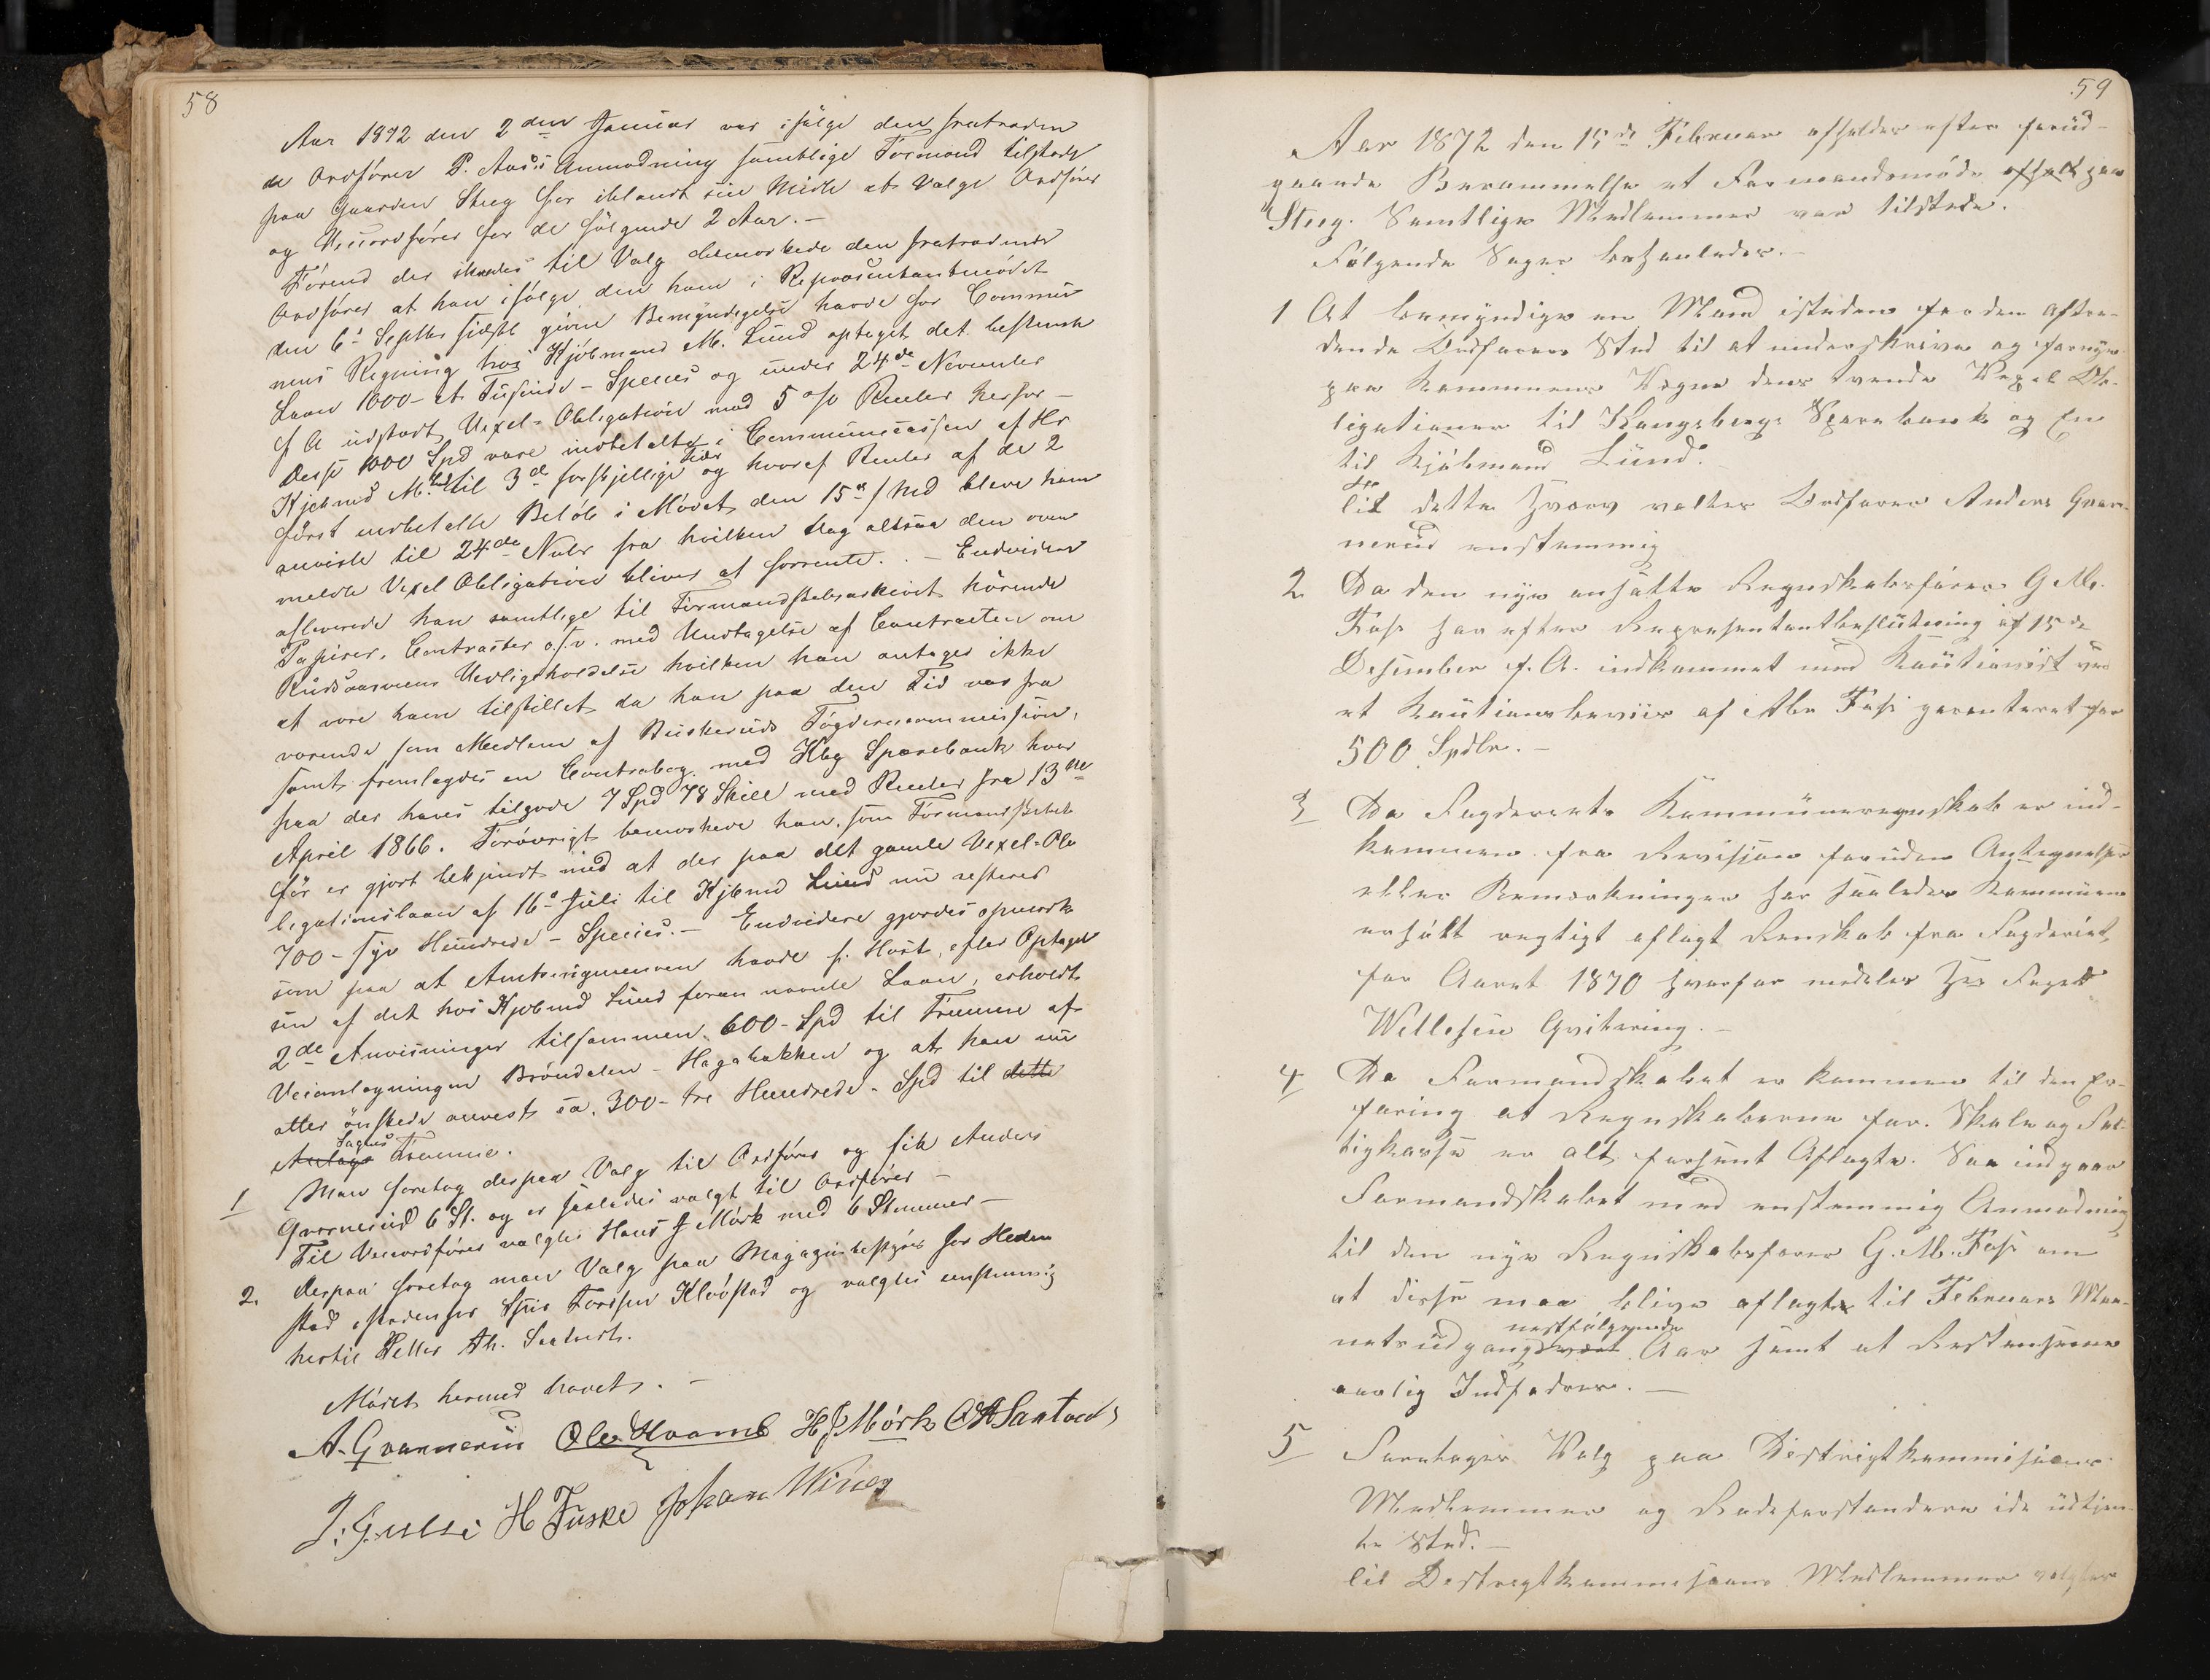 58
Aar 1872 den 2den Januar var ifølge den fratræden
de Ordfører P. Aas's Anmodning samtlige Formænd tilstæde
paa Gaarden Steg for iblandt sin Midte at vælge Ordfører
og Viceordfører for de følgende 2 Aar.-
Førend der skredes til Valg bemærkede den fratrædende
Ordfører at han ifølge den ham i Repræsentantmødet
den 6te Septbr sidstl givne Bemyndigelse havde for Commu
nens Regning hos Kjøbmand M. Lund optaget det bestemte
Laan 1000- et Tusinde - Species og under 24de November
f A udstædt Vexel-Obligation med 5 o/o Renter herfor -
Disse 1000 Spd vare indbetalte i Communecassen af Hr
Kjøbmd M. Lund til 3de forskjellige Tider og hvoraf Renter af de 2
først indbetalte Beløb i Mødet den 15de f Md bleve ham
anviste til 24de Novbr fra hvilken Dag altsaa den oven
meldte Vexel Obligation bliver at forrente. - Endvidere
afleverede han samtlige til Formandskabsarkivet hørende
Papirer, Contracter o.s.v. med Undtagelse af Contracten om
Vedligeholdelse hvilken han antager ikke
at være ham tilstillet da han paa den Tid var fra
værende som Medlem af Buskeruds Fogdericommission,
samt fremlagdes en Contrabog med Kbg Sparebank hvor
paa der haves tilgode 7 Spd 78 Skill med Renter fra 13de
April 1866. Forøvrigt bemærkede han, som Formandskabet
før er gjort bekjendt med at der paa det gamle Vexel-Ob
ligationslaan af 16de Juli til Kjøbmd Lund nu resterer
700 - syv Hundrede - Species. - Endvidere gjordes opmærk
som paa at Amtsingeniøren havde f. Høst, efter Optagel
sen af det hos Kjøbmd Lund foran nævnte Laan, erholdt
2de Anvisninger tilsammen 600 - Spd til Fremme af
Veianlægningen Brøndalen - Hagabakken og at han nu
atter ønskede anvist ca. 300 - tre Hundrede - Spd til dette
Anlægs Sagens Fremme.
1 Man foretog derpaa Valg til Ordfører og fik Anders
Qværnerud 6 St. og er saaledes valgt til Ordfører -
Til Viceordfører valgtes Hans J Mørk med 6 Stemmer -
2. Derpaa foretog man Valg paa Magazinbestyrer for Heden
stad istedenfor Tordsen Kløvstad og valgtes enstemmig
hertil Petter Th. Saatvedt.
Mødet hermed hævet. -
A. Qvarnerud Ole Hvamb H J Mørk O A Saatved
H Fuske Johan Wiig
59
Aar 1872 den 15de Februar afholdes efter forud-
gaaende Berammelse et Formandsmøde afholdt paa
Steg. Samtlige Medlemmer var tilstede.
Følgende Sager behandledes. -
1 At bemyndige en Mand isteden for den aftræ-
dende Ordførers Sted til at underskrive og fornye
paa Kommunens Vegne dens tvende Vexel Ob-
ligationer til Kongsbergs Sparebank og En
til Kjøbmand Lund.
til dette Hværv valtes Ordfører Anders Qvær-
nerud enstemmig
2 Da den nye ansatte Regnskabsfører G M.
Foss har efter Repræsentantbeslutning af 15de
Desember f. A. indkommet med Kautionist ved
et Kautionsbeviis af Abr Foss garanteret for
500 Spdlr. -
3 Da Fogderiets Kommuneregnskab er ind-
kommen fra Revisjon foruden Antegnelser
eller Bemærkninger har saaledes Kommunen
erholdt regtigt aflagt Renskab fra Fogderiet,
for Aaret 1870 hvorfor medeles Hr Foged
Wellesen Qvitering. -
4 Da Formandskabet er kommen til den Er-
faring at Regnskaberne for Skole og Fat-
tigkasse er alt forsent Aflagte. Saa indgaar
Formandskabet med enstemmig Anmodning
til den nye Regnskabsfører G. M. Foss om
at disse maa blive aflagte til Februars Maa-
nets udgang nestfølgende Aar samt at Restansene
aarlig Indfodres. -
5 Foretages Valg paa Distrigtkommisions
Medlemmer og Rodeforstandere i de udtjen-
te Sted. -
til Destrigtkommisions Medlemmer valgtes